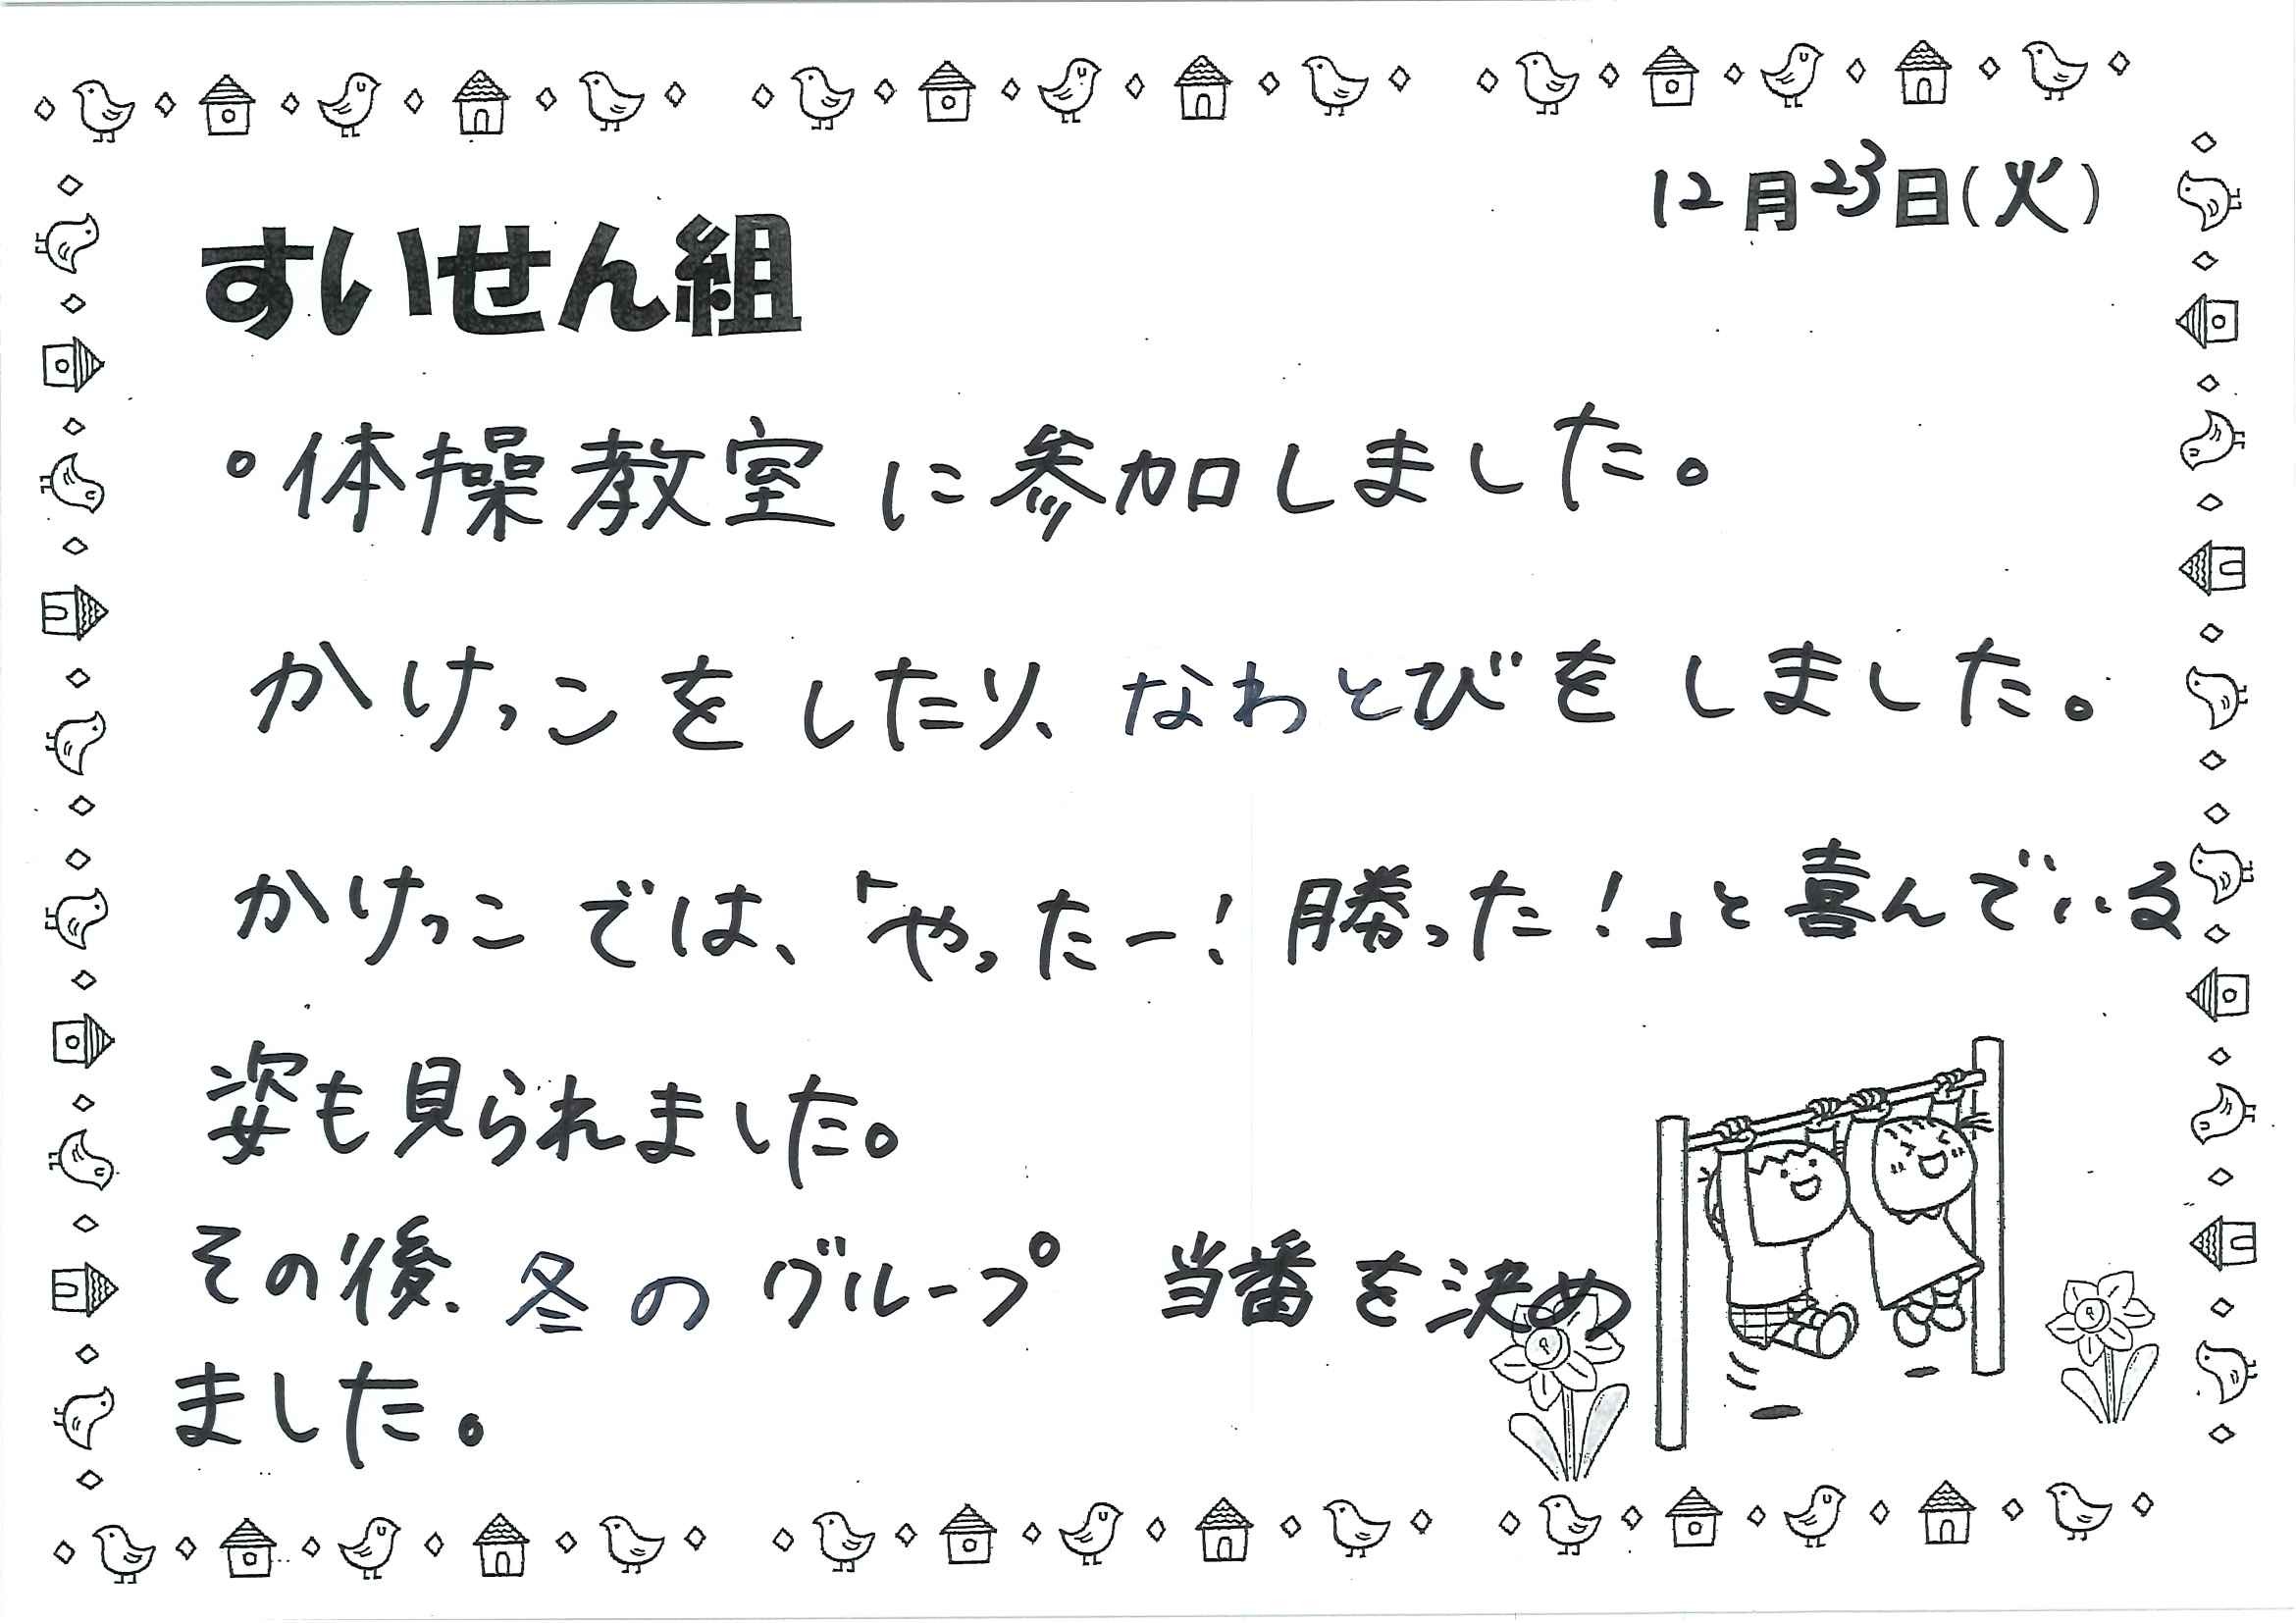 12月23日(火)
すいせん組
。体操教室に参加しました。
かけっこをしたり、なわとびをしました。
かけっこでは、「やったー!勝った!」と喜んでいる
姿も見られました。
その後、冬のグループ 当番を決め
ました。